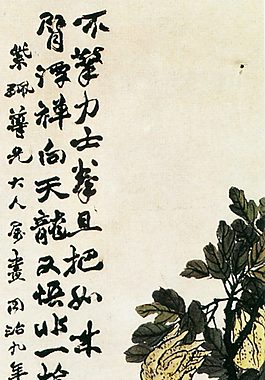 不擎力士拳且把如来
臂譚禪向天龍又悟此一指
紫珮尊兄大人屬畫同治九年